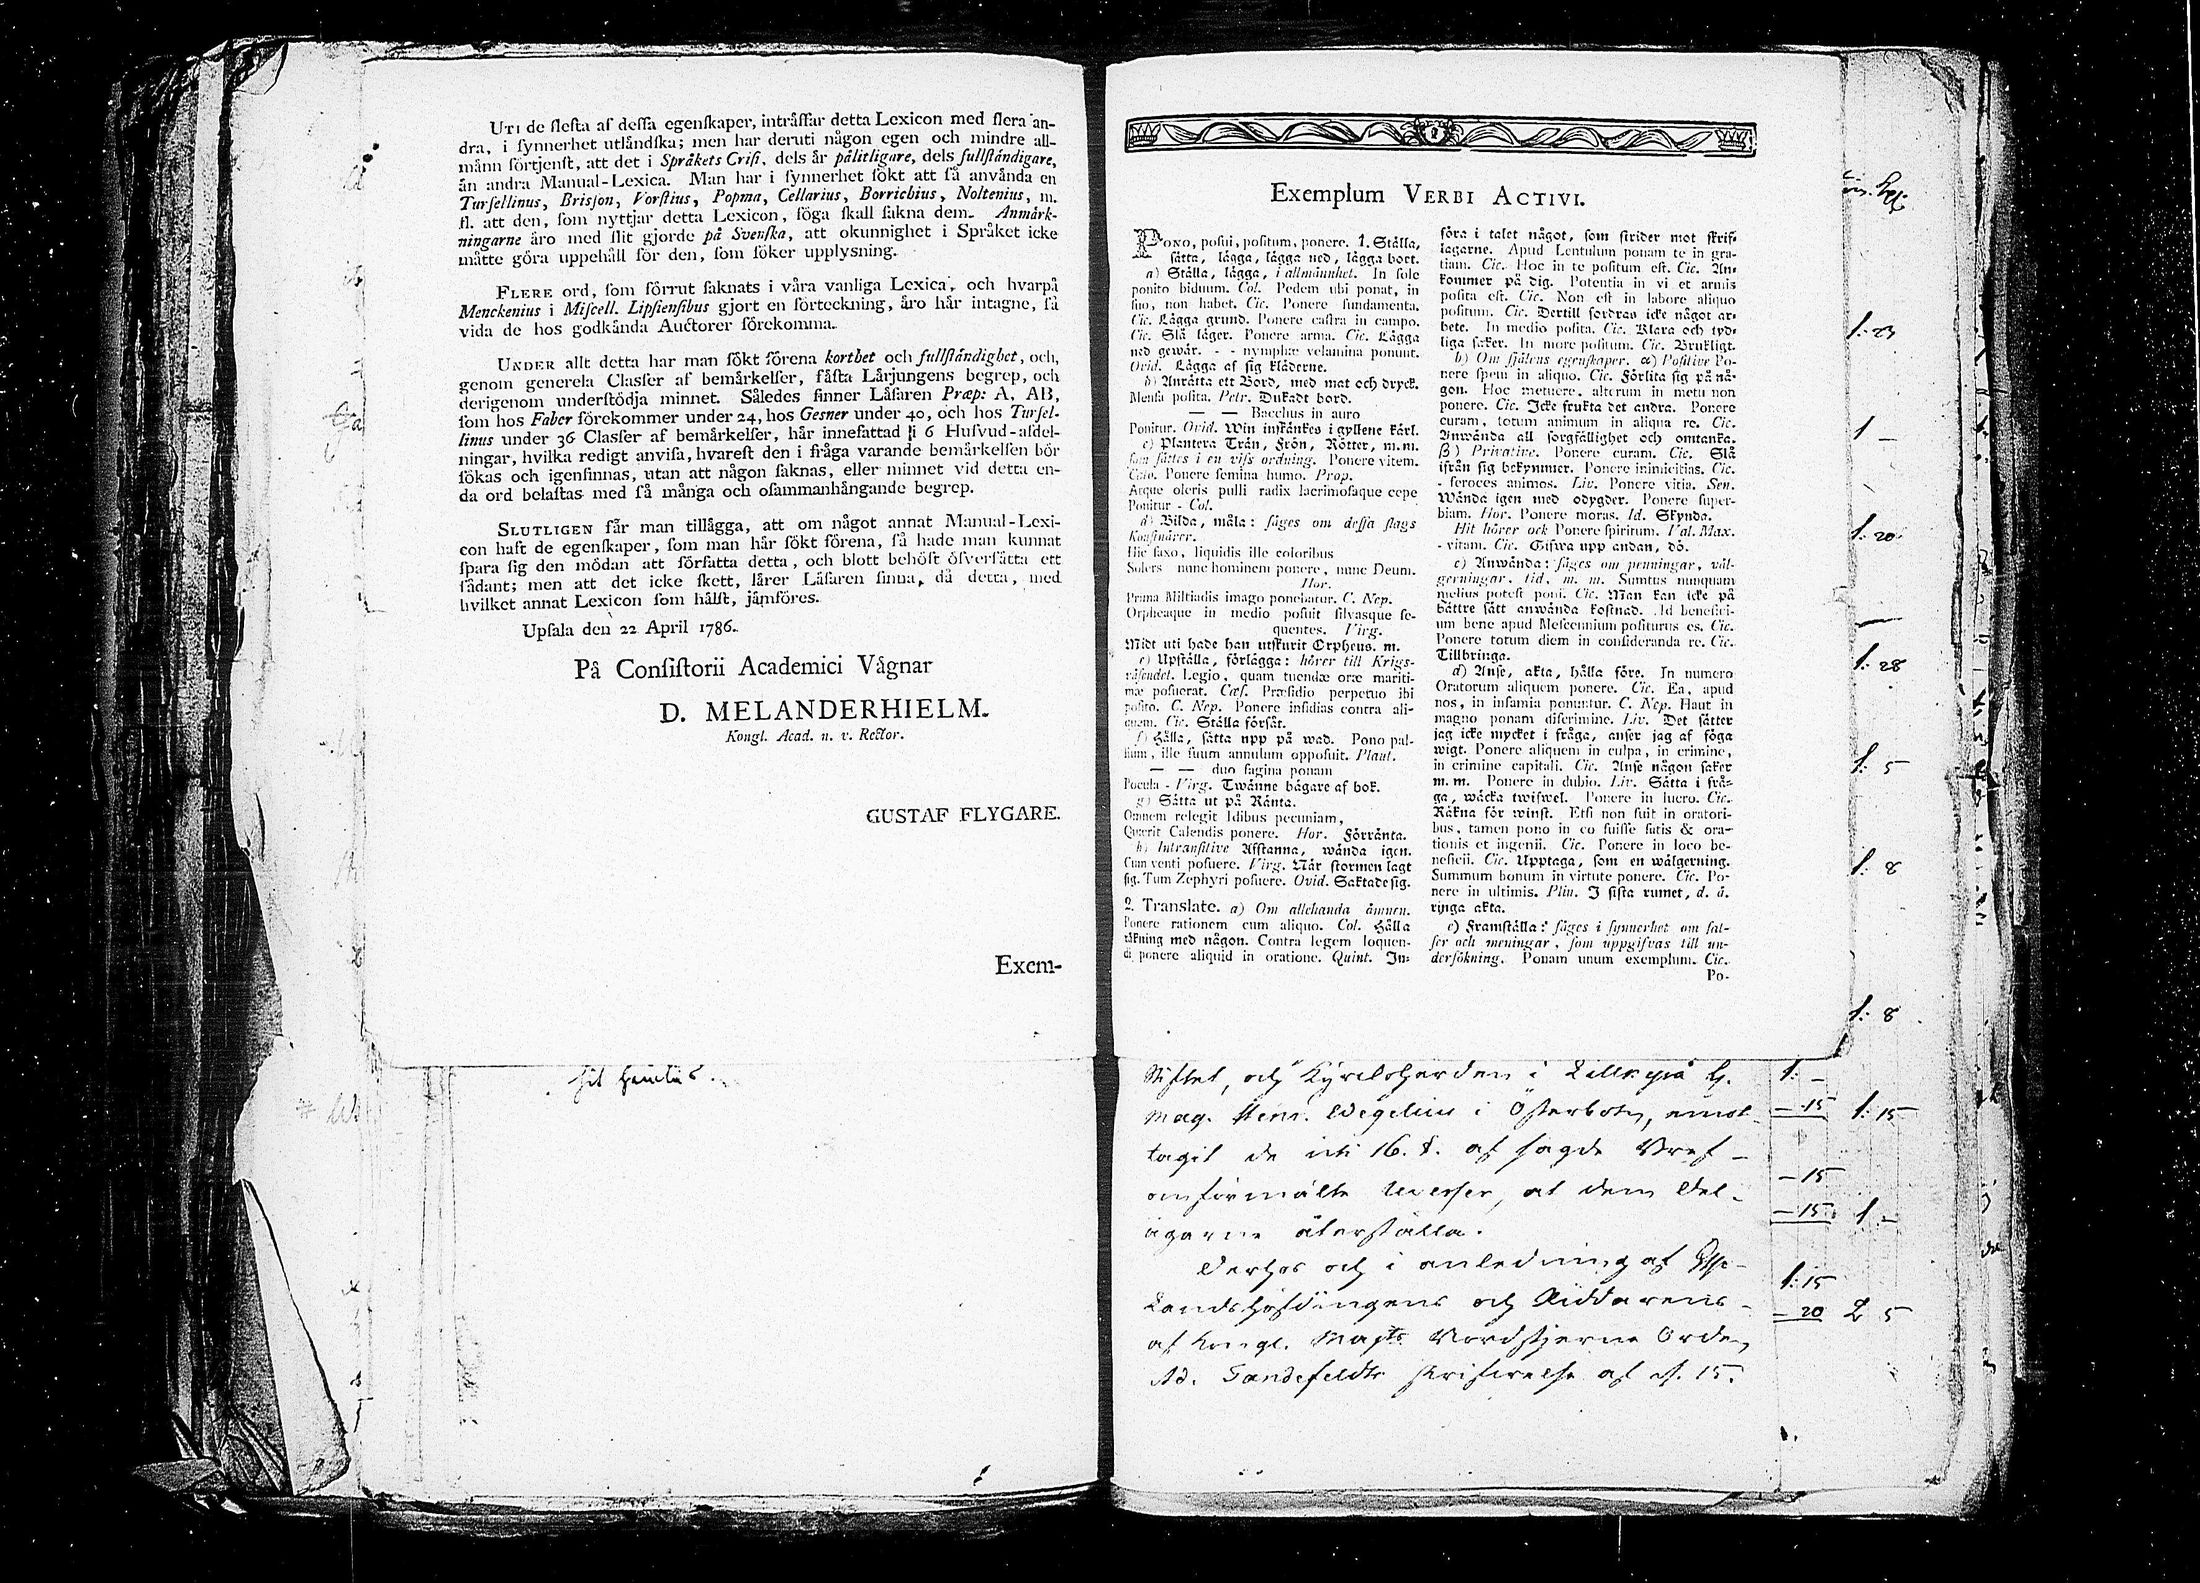 UTI de flesta af dessa egenskaper, intråffar detta Lexicon med flera an-
dra, i synnerhet utlåndska; men har deruti någon egen och mindre all-
månn förtjenst, att det i Språkets Crisi, dels år pålitligare, dels fullståndigare,
ån andra Manual-Lexica. Man har i synnerhet sökt att få anvånda en
Tursellinus, Brisson, Vorstius, Popma, Cellarius, Borrichius, Noltenius, m.
fl. att den, som nyttjar detta Lexicon, föga skall sakna dem. Anmårk-
ningarne åro med flit gjorde på Svenska, att okunnighet i Språket icke
måtte göra uppehåll för den, som söker upplysning.
FLERE ord, som förrut saknats i våra vanliga Lexica, och hvarpå
Menckenius i Miscell. Lipsiensibus gjort en förteckning, åro hår intagne, få
vida de hos godkånda Auctorer förekomma.
UNDER allt detta har man sökt förena korthet och fullståndighet, och,
genom generela Classer af bemårkelser, fåsta Lårjungens begrep, och
derigenom understödja minnet. Således finner Låsaren Præp: A, AB,
som hos Faber förekommer under 24, hos Gesner under 40, och hos Tursel-
linus under 36 Classer af bemårkelser, hår innefattad i 6 Hufvud-afdel-
ningar, hvilka redigt anvisa, hvarest den i fråga varande bemårkelsen bör
sökas och igenfinnas, utan att någon saknas, eller minnet vid detta en-
da ord belastas med så många och osammanhångande begrep.
SLUTLIGEN får man tillågga, att om något annat Manual-Lexi-
con haft de egenskaper, som man hår sökt förena, så hade man kunnat
spara sig den mödan att författa detta, och blott behöft öfversåtta ett
sådant; men att det icke skett, lårer Låsaren finna, då detta, med
hvilket annat Lexicon som hålst, jåmföres.
Upsala den 22 April 1786.
På Consistorii Academici Vågnar
D. MELANDERHIELM.
Kongl. Acad. n. v. Rector.
GUSTAF FLYGARE.
Exem-
Exemplum VERBI ACTIVI.
PONO, posui, positum, ponere. 1. Stålla,
såtta, lågga, lågga ned, lågga bort.
a) Stålla, lågga, i allmånnhet. In sole
ponito biduum. Col. Pedem ubi ponat, in
suo, non habet. Cic. Ponere fundamenta.
Cic. Lågga grund. Ponere castra in campo.
Cic. Slå låger. Ponere arma. Cic. Lågga
ned gewår. - - nymphæ velamina ponunt.
Ovid. Lågga af sig klåderne.
b) Anråtta ett Bord, med mat och dryck.
Mensa posita. Petr. Dukadt bord.
— — Bacchus in auro
Ponitur. Ovid. Win inskånkes i gyllene kårl.
c) Plantera Trån, Frön, Rötter, m.m.
som såttes i en viss ordning. Ponere vitem.
Cato. Ponere semina humo. Prop.
Atque oleris pulli radix lacrimosaque cepe
Ponitur - Col.
d) Bilda, måla: såges om dessa slags
Konstnårer.
Hic saxo, liquidis ille coloribus
Solers nunc hominem ponere, nunc Deum.
Hor.
Prima Miltiadis imago ponebatur. C. Nep.
Orpheaque in medio posuit silvasque se-
quentes. Virg.
Midt uti hade han utskurit Orpheus. m.
e) Upstålla, förlågga: hörer till Krigs-
våsendet. Legio, quam tuendæ oræ mariti-
mæ posuerat. Cæs. Præsidio perpetuo ibi
posito. C. Nep. Ponere insidias contra ali-
quem. Cic. Stålla försåt.
f) Hålla, såtta upp på wad. Pono pal-
lium, ille suum annulum opposuit. Plaut.
— — duo fagina ponam
Pocula - Virg. Twånne bågare af bok.
g) Såtta ut på Rånta.
Omnem relegit Idibus pecuniam,
Quærit Calendis ponere. Hor. Förrånta.
h) Intransitive Afstanna, wånda igen.
Cum venti posuere. Virg. Når stormen lagt
sig. Tum Zephyri posuere. Ovid. Saktade sig.
2. Translate. a) Om allehanda åmnen.
Ponere rationem cum aliquo. Col. Hålla
råkning med någon. Contra legem loquen-
di ponere aliquid in oratione. Quint. In-
föra i talet något, som strider mot skrif-
lagarne. Apud Lentulum ponam te in gra-
tiam. Cic. Hoc in te positum est. Cic. An-
kommer på dig. Potentia in vi et armis
posita est. Cic. Non est in labore aliquo
positum. Cic. Dertill fordras icke något ar-
bete. In medio posita. Cic. Klara och tyd-
liga saker. In more positum. Cic. Brukligt.
b) Om sjålens egenskaper. α) Positive Po-
nere spem in aliquo. Cic. Förlita sig på nå-
gon. Hoc metuere, alterum in metu non
ponere. Cic. Icke frukta det andra. Ponere
curam, totum animum in aliqua re. Cic.
Anwånda all sorgfållighet och omtanka.
β) Privative. Ponere curam. Cic. Slå
ifrån sig bekymmer. Ponere inimicitias. Cic.
- feroces animos. Liv. Ponere vitia. Sen.
Wånda igen med odygder. Ponere super-
biam. Hor. Ponere moras. Id. Skynda.
Hit hörer ock Ponere spiritum. Val. Max.
- vitam. Cic. Gifwa upp andan, dö.
c) Anwånda: såges om penningar, vål-
gerningar, tid, m. m. Sumtus nunquam
melius potest poni. Cic. Man kan icke på
båttre sått anwånda kostnad. Ad benefici-
um bene apud Mescennium positurus es. Cic.
Ponere totum diem in consideranda re. Cic.
Tillbringa.
d) Anse, akta, hålla före. In numero
Oratorum aliquem ponere. Cic. Ea, apud
nos, in infamia ponuntur. C. Nep. Haut in
magno ponam discrimine. Liv. Det såtter
jag icke mycket i fråga, anser jag af föga
wigt. Ponere aliquem in culpa, in crimine,
in crimine capitali. Cic. Anse någon saker
m. m. Ponere in dubio. Liv. Såtta i frå-
ga, wåcka twifwel. Ponere in lucro. Cic.
Råkna för winst. Etsi non fuit in oratori-
bus, tamen pono in eo fuisse satis & ora-
tionis et ingenii. Cic. Ponere in loco be-
neficii. Cic. Upptaga, som en wålgerning.
Summum bonum in virtute ponere. Cic. Po-
nere in ultimis. Plin. I sista rumet, d. å.
ringa akta.
e) Framstålla: såges i synnerhet om sat-
ser och meningar, som uppgifvas till un-
dersökning. Ponam unum exemplum. Cic.
Po-
1: 23
1 —
1: 20
1: 28
1: 5
1: 8
1: 8
Stiftet, och Kyrckoherden i Lillkyrå H. 1: —
Mag. Henr. Wegelius i Österbotn, emot — 15 1: 15
tagit de uti 16. §. af sagde Bref — — 15
omförmälte Reverser, at dem Del- — 15 1 —
ägarne återställa.
Derhos och i anledning af 1: 15
Landshöfdingens och Riddarens — 20 2 5
af Kongl. Majts Nordstjerne Orden
Ad. Tandefeldts skrifwelse af d. 15.